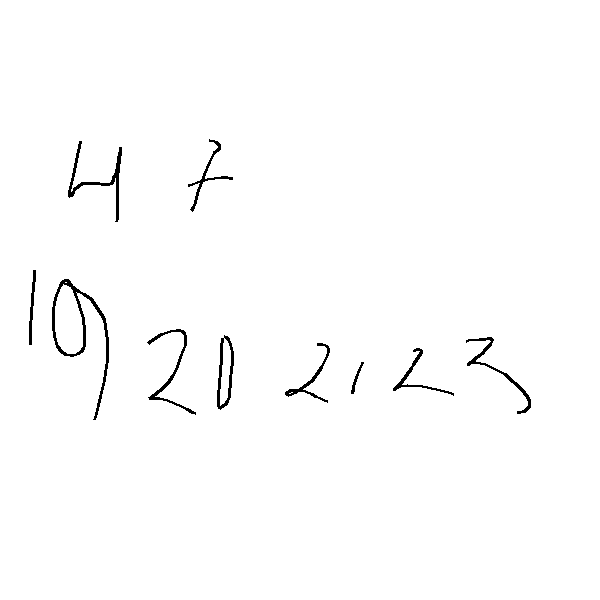 4 7
19 20 21 23